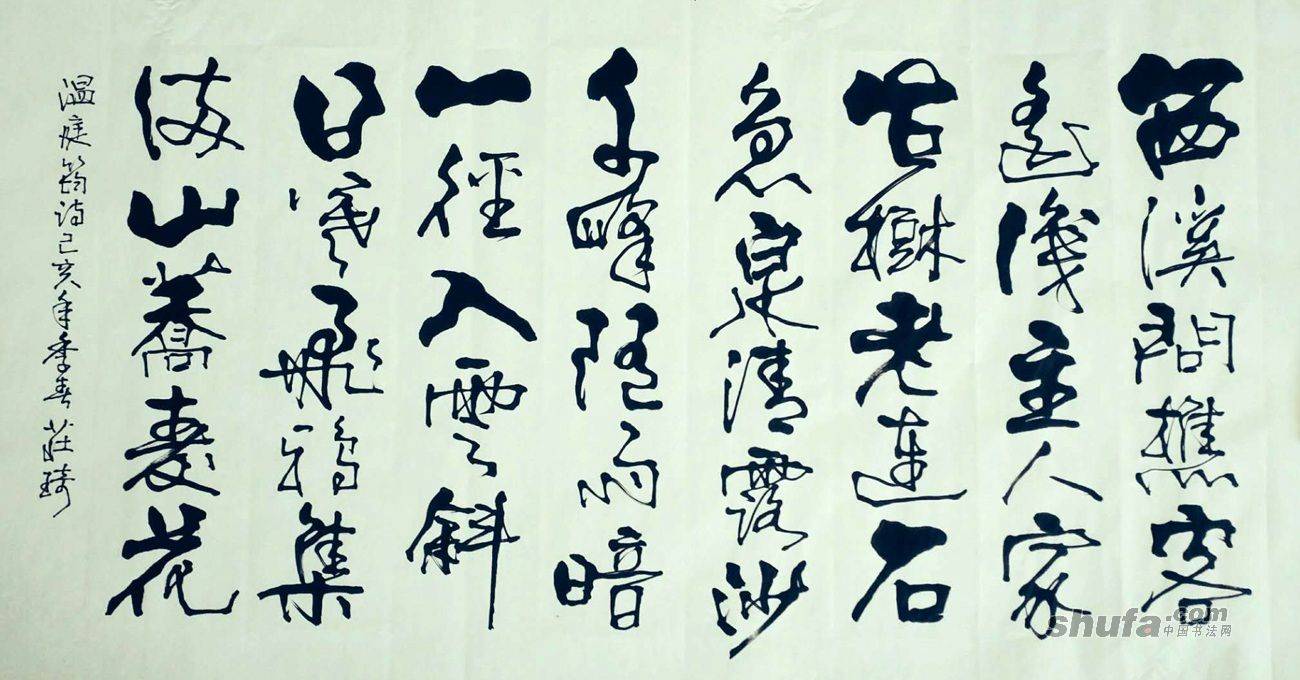 西溪問樵客
遙識主人家
古樹老連石
急泉清露沙
千峰隨雨暗
一徑入雲斜
日寒飛鴉集
满山蕎麦花
温庭筠诗己亥年季春莊琦
shufa.com
中国书法网